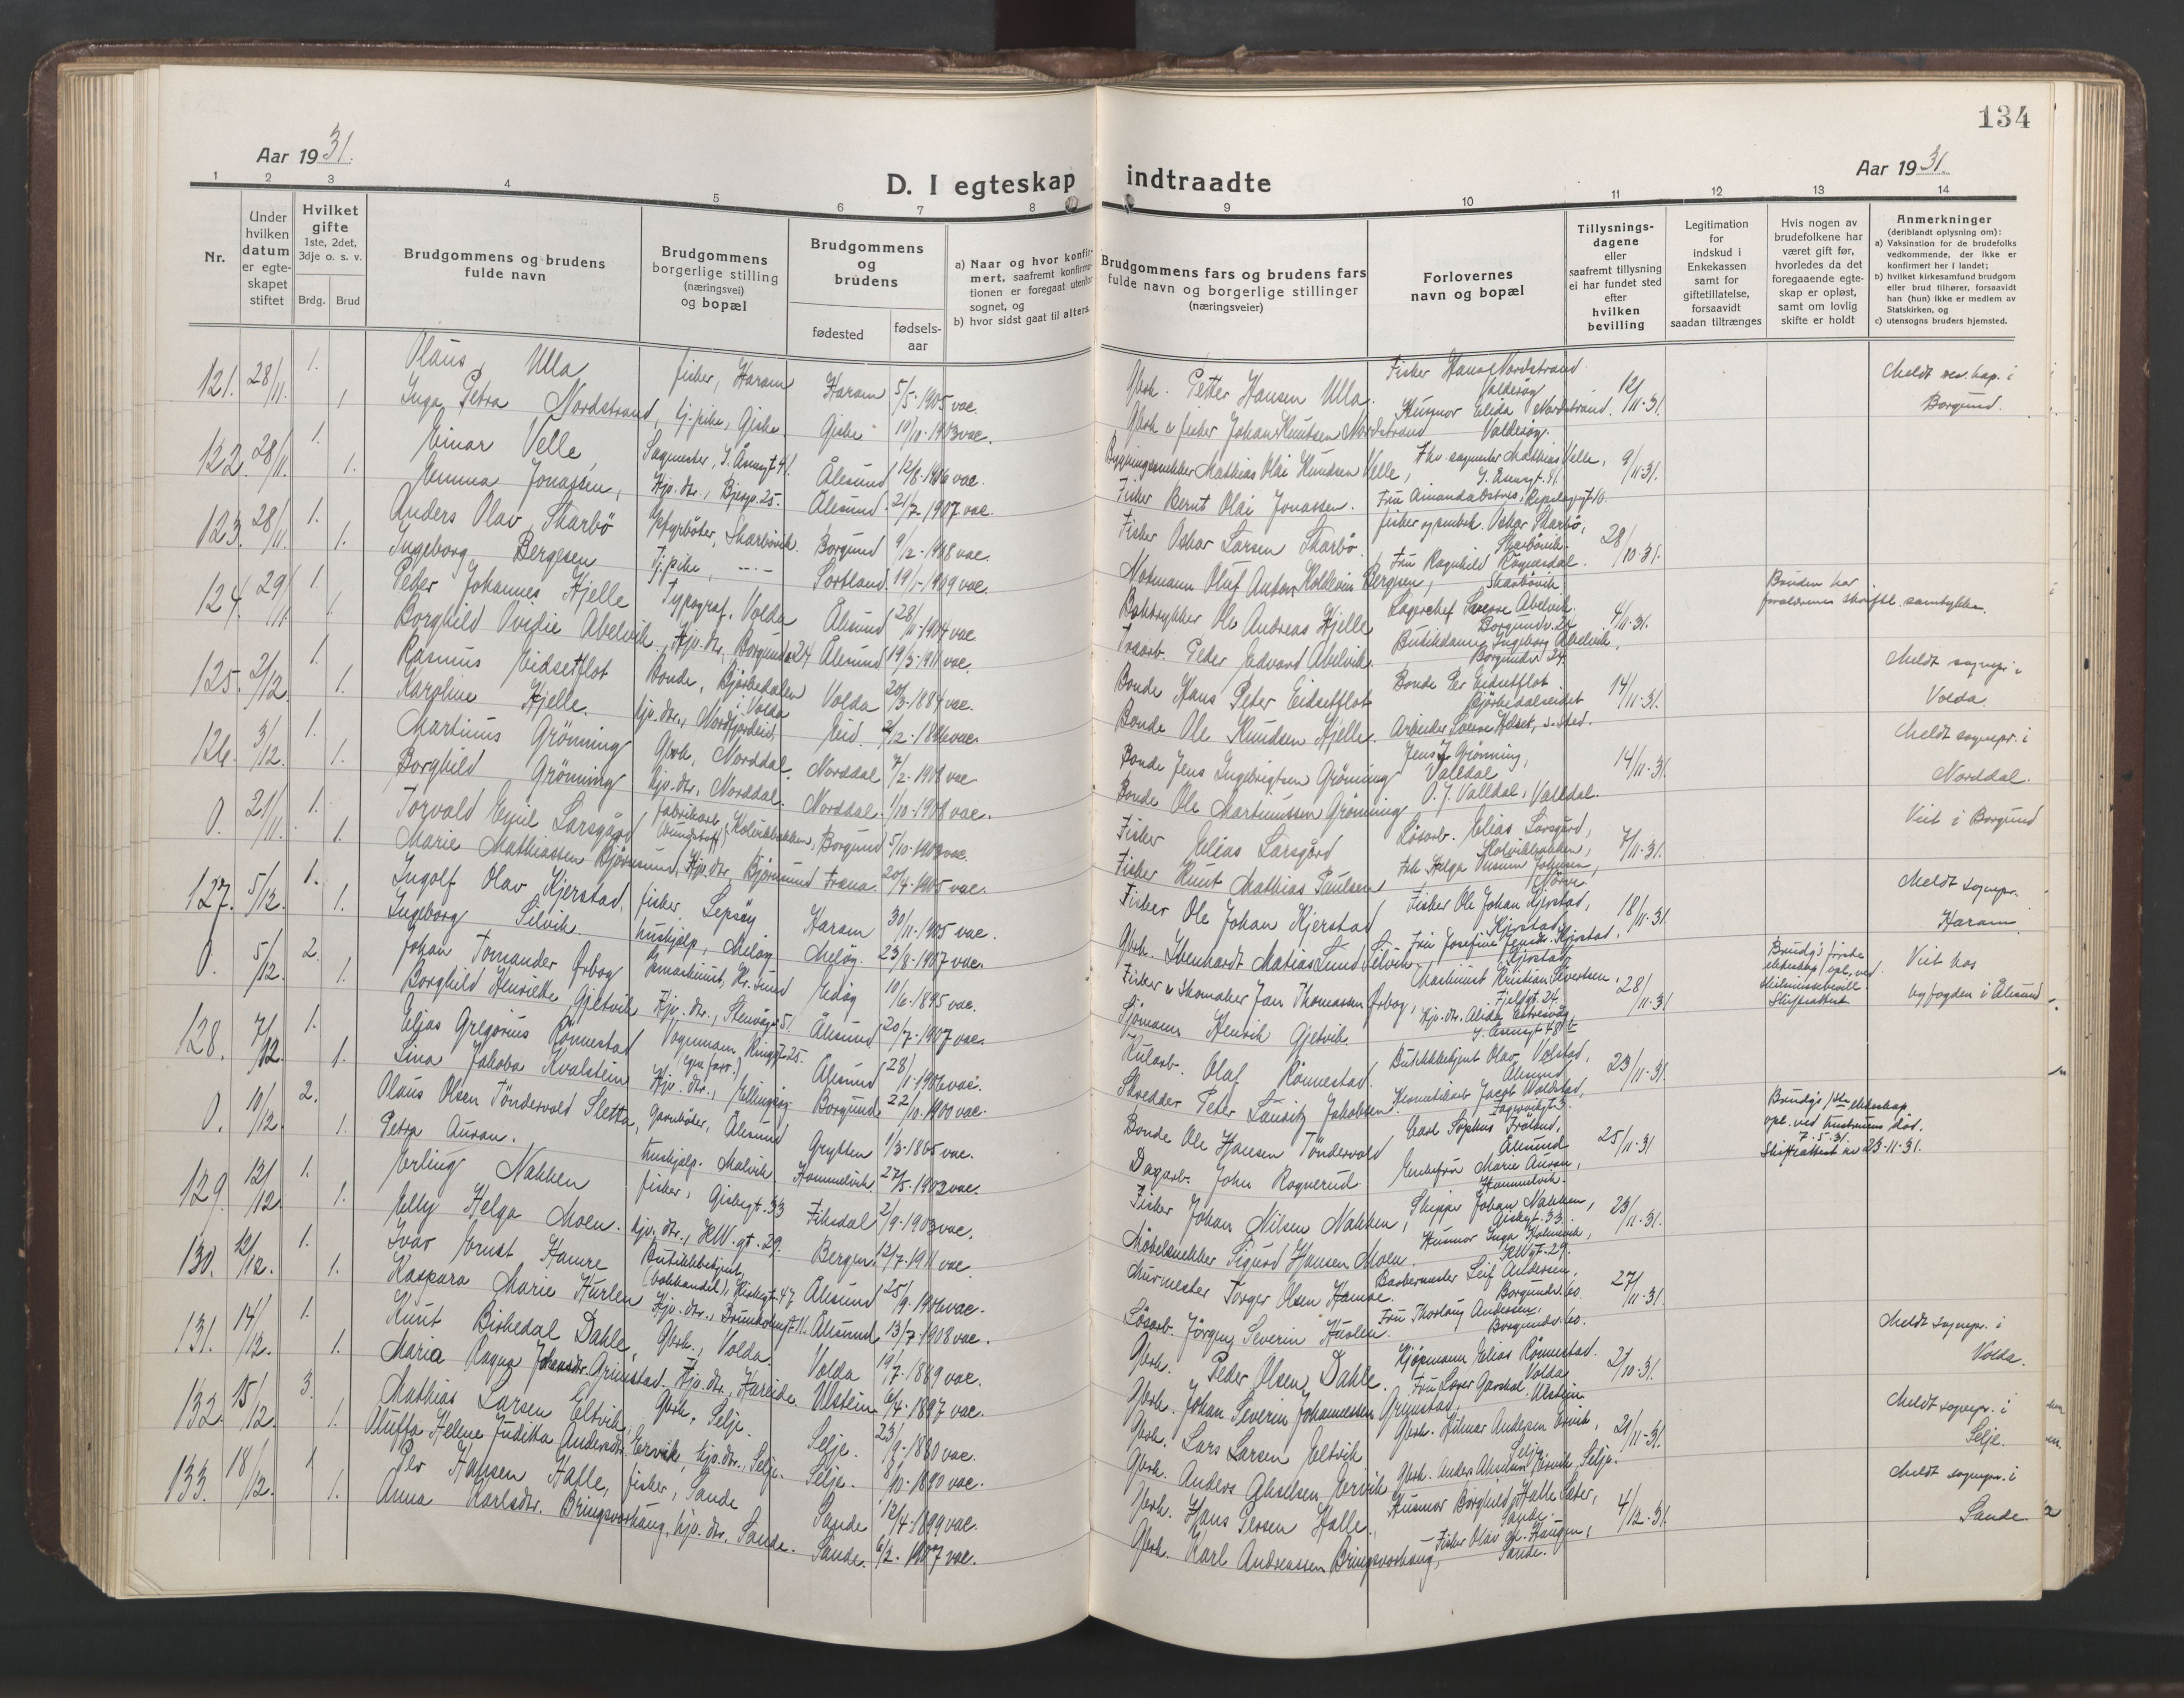 134
Aar 1931.
Aar 1931.
D. I egteskap indtraadte
1 2 3 4 5 6 7 8 9 10 11 12 13 14
Nr.
Under hvilken datum er egteskapet stiftet
Hvilket gifte 1ste, 2det, 3dje o. s. v.
Brdg. Brud
Brudgommens og brudens fulde navn
Brudgommens borgerlige stilling (næringsvei) og bopæl
Brudgommens og brudens
fødested
fødselsaar
a) Naar og hvor konfirmert, saafremt konfirmationen er foregaat utenfor sognet, og
b) hvor sidst gaat til alters.
Brudgommens fars og brudens fars fulde navn og borgerlige stillinger (næringsveier)
Forlovernes navn og bopæl
Tillysningsdagene eller saafremt tillysning ei har fundet sted efter hvilken bevilling
Legitimation for indskud i Enkekassen samt for giftetillatelse, forsaavidt saadan tiltrænges
Hvis nogen av brudefolkene har været gift før, hvorledes da det foregaaende egteskap er opløst, samt om lovlig skifte er holdt
Anmerkninger (deriblandt oplysning om):
a) Vaksination for de brudefolks vedkommende, der ikke er konfirmert her i landet;
b) hvilket kirkesamfund brudgom eller brud tilhører, forsaavidt han (hun) ikke er medlem av Statskirken, og
c) utensogns bruders hjemsted.
121. 28/11. 1. Olaus Ulla fisker, Haram Haram 5/5-1905 vac. Gbrk. Petter Hansen Ulla. Fisker Hans Nordstrand Valderøy 12/11-31. Meldt res. kap. i
1 Inga Petra Nordstrand, tj. pike, Giske. Giske 10/10-1903 vac. Gbrk & fisker Johan Knutsen Nordstrand Husmor Elida Nordstrand. Valderøy. Borgund.
122. 28/11. 1. Einar Velle, Sagmester, Ålesund 12/8-1906 vac. Bygningssnekker Mathias Olai Knudsen Velle, Fhv. sagmester Mathias Velle, 9/11-31.
1. Emma Jonassen, Hjv. dtr., 25. Ålesund 21/7-1907 vac. Fisker Bernt Olai Jonassen. Fru Amanda
123. 28/11. 1. Anders Olav Skarbö Fyrböter, Skarbövik. Borgund 9/12-1908 vac. Fisker Oskar Larsen Skarbö. fisker og småbrk. Oskar Skarbö, Skarbövik. 28/10-31.
1. Ingeborg Bergesen Tj. pike, -"- Sortland 19/1-1909 vac. Notmann Oluf Anton Bergesen, Fru Ragnhild Skarbövik
124. 29/11. 1. Peder Johannes Hjelle Typograf, Volda Ålesund 28/11-1904 vac Boktrykker Ole Andreas Hjelle Lagerchef Sverre Abelvik. Borgundv. 24. 4/11-31. Bruden har forældrenes skriftl. samtykke.
1. Borghild Ovidie Abelvik, Hjv. dtr, Borgundv. 24 Ålesund 19/3-1911 vac. Peder Edvard Abelvik. Butikdame Ingeborg Abelvik, Borgundv. 24.
125. 2/12. 1. Rasmus Eidsetflot Bonde, Björkedalen i Volda Volda 20/3-1884 vac. Bonde Hans Peter Eidsetflot Bonde Per Eidsetflot 14/11-31. Meldt sognepr. i
1. Karoline Hjelle. hjv. dtr., Nordfjordeid. Eid. vac. Bonde Ole Knudsen Hjelle. Arbeider Sverre Volda.
126. 3/12. 1. Martinus Grönning Gbrk, Norddal. Norddal 7/2-1908 vac Bonde Jens Ingebrigtsen Grönning Jens J Grönning, Valldal 14/11-31. Meldt sognepr. i
1. Borghild Grönning hjv. dtr, Norddal. Norddal. 1/10-1908 vac. Bonde Ole Martinussen Grönning O. J. Valldal, Valldal. Norddal.
0. 21/11. 1. Torvald Emil Larsgård fabrikarb. Kolvikbakken, Borgund 5/10-1903 vac. Fisker Elias Larsgård Lösarb. Elias Larsgård, Kolvikbakken, 7/11-31. Viet i Borgund
1. Marie Mathiassen Björnsund, Hjv. dtr, Björnsund Fræna. 20/4-1905 vac. Fisker Knut Mathias Paulsen, Frk Helga Johnsen, Nörve
127. 5/12. 1. Ingolf Olav Kjerstad, fisker, Lepsøy Haram 30/11-1905 vac. Fisker Ole Johan Kjerstad, Fisker Ole Johan Kjerstad, Kjerstad 18/11-31. Meldt sognepr.
1. Ingeborg Selvik. hushjelp, Meløy Meløy. 23/8-1907 vac. Gbrk. Ibenhardt Matias Lund Selvik Fru Josefine Kjerstad, Kjerstad Haram.
0. 5/12. 2. Johan Tomander Ørbog maskinist, Kr. sund Edøy 10/6-1895 vac. Fisker & skomaker Jan Thomassen Ørbog, Maskinist Kristian Sivertsen, Fjeldgt. 24. 28/11-31 Brudg's første ekteskap opl. ved Skilsmissebevill. Skifteattest Viet hos byfogden i Ålesund
1. Borghild Henriette Gjetvik Hjv. dtr., Ålesund 20/7-1907 vac. Sjömann Henrik Gjetvik. Hjv. dtr. Alida
128. 7/12. 1. Elias Gregorius Rönnestad Vognmann, Ringgt. 25. Ålesund 28/11-1906 vac. Kularb. Olaf Rönnestad. Butikkbetjent Olav Velstad, Ålesund 23/11-31.
1. Lina Jakoba Kvalstein Hjv. dtr., Ellingsøy Borgund 22/10-1900 vac. Skredder Peder Lauritz Jakobsen. Jacob Valdstad, Fagerviksgt 3.
0. 10/12. 2. Olaus Olsen Töndervold Sletta, Garnböter, Ålesund Grytten 1/3-1865 vac. Bonde Ole Hansen Töndervold Carl Sophus Fröland, Ålesund 25/11-31 Brudg's 1ste ekteskap opl. ved hustruens död. 7-5-31. Skifteattest av 23-11-31.
1. Petra Auran. hushjelp. Malvik Hommelvik 27/5-1902 vac. Dagarb. John Rognerud Enkefru Marie Auran, Hommelvik.
129. 12/12. 1. Erling Nakken fisker, Giskegt. 33 Fiksdal 2/9-1903 vac. Fisker Johan Nilsen Nakken, Skipper Johan Nakken, Giskegt. 33. 23/11-31.
1. Elly Helga Moen. hjv. dtr., KW. gt. 29. Bergen 12/7-1911 vac Möbelsnekker Sigurd Hansen Moen. Husmor Inga KW gt. 29.
130. 12/12. 1. Ivar Ernst Hamre Butikkbetjent, (bokhandel), Kirkegt. 47 Ålesund 25/9-1906 vac. Murmester Torger Olsen Hamre. Barbermester Leif Andersen, Borgundv. 60. 27/11-31
1. Kaspara Marie Hurlen Hjv. dtr., 11. Ålesund 13/7-1908 vac. Lösarb. Jörgen Severin Hurlen. Fru Thorlaug Andersen, Borgundv. 60.
131. 14/12. 1. Knut Birkedal Dahle, Gbrk., Volda. Volda 19/7-1889 vac. Gbrk. Peder Olsen Dahle. Kjöpmann Elias Rönnestad. Volda 21/10-31. Meldt sognepr. i
1. Maria Ragna Johansdtr. Grimstad. Hjv. dtr., Hareide Ulstein 6/4-1897 vac. Gbrk. Johan Severin Johannessen Grimstad. Fru Ulstein Volda.
132 15/12. 3. Mathias Larsen Eltvik Gbrk, Selje. Selje. 23/9-1880 vac. Gbrk. Lars Larsen Eltvik Gbrk. Hilmar Andersen Ervik, Selje 21/11-31. Meldt sognepr. i
1. Oluffa Helene Juditha Andersdtr. Ervik, hjv. dtr., Selje. Selje. 8/10-1890 vac. Gbrk. Anders Akselsen Ervik Gbrk. Anders Akselsen Ervik, Selje. Selje.
133. 18/12. 1 Per Hansen Halle, fisker, Sande Sande 12/4-1899 vac. Gbrk. Hans Persen Halle. Husmor Borghild Halle Sæter, Sande 4/12-31. Meldt sognepr. i
1. Anna Karlsdtr. Bringsvorhaug, hjv. dtr, Sande. Sande. 6/2-1907 vac. Gbrk. Karl Andreassen Bringsvorhaug, Fisker Olav Haugen, Sande. Sande.